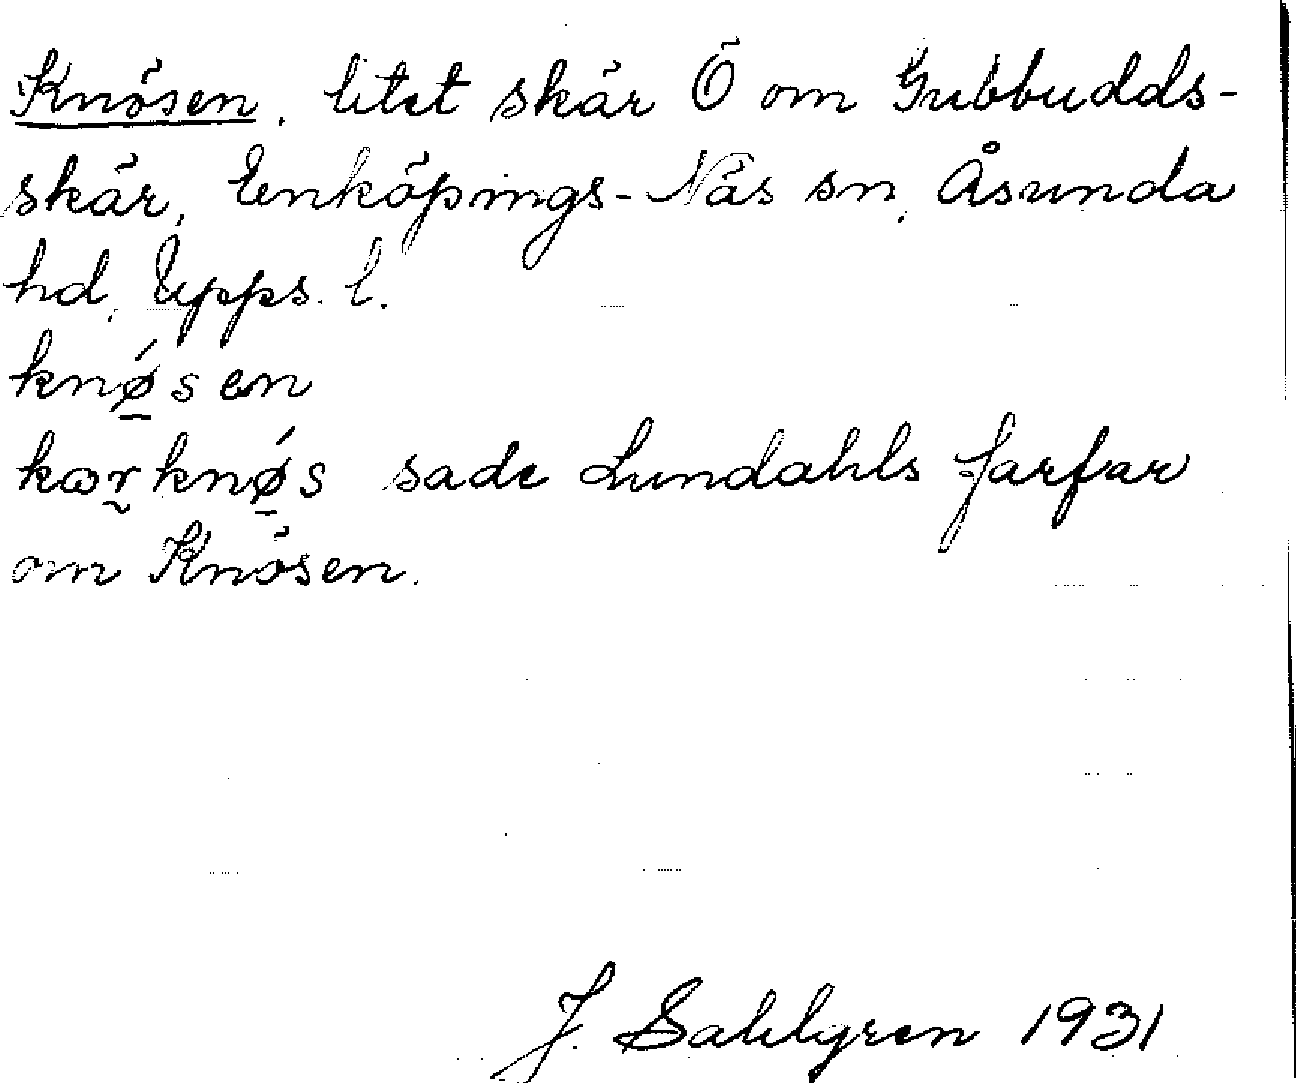 Knösen, litet skär Ö om Gubbudds-
skär, Enköpings-Näs sn, Åsunda
hd, Upps. l.
knǿ̠sen
kær̰knǿ̠s sade Lundahls farfar
om Knösen.
J. Sahlgren 1931